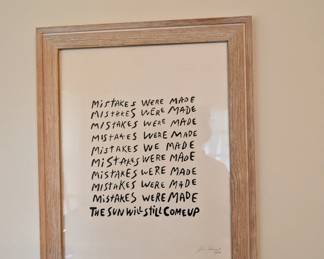 MiSTAKES WERE MADE
MISTAKES WERE MADE
MISTAKES WERE MADE
MISTAKES WERE MADE
MISTAKES WE MADE
MiSTAKES WERE MADE
MISTAKES WERE MADE
MISTAKES WERE MADE
MISTAKES WERE MADE
THE SUN WILL STILL COME UP